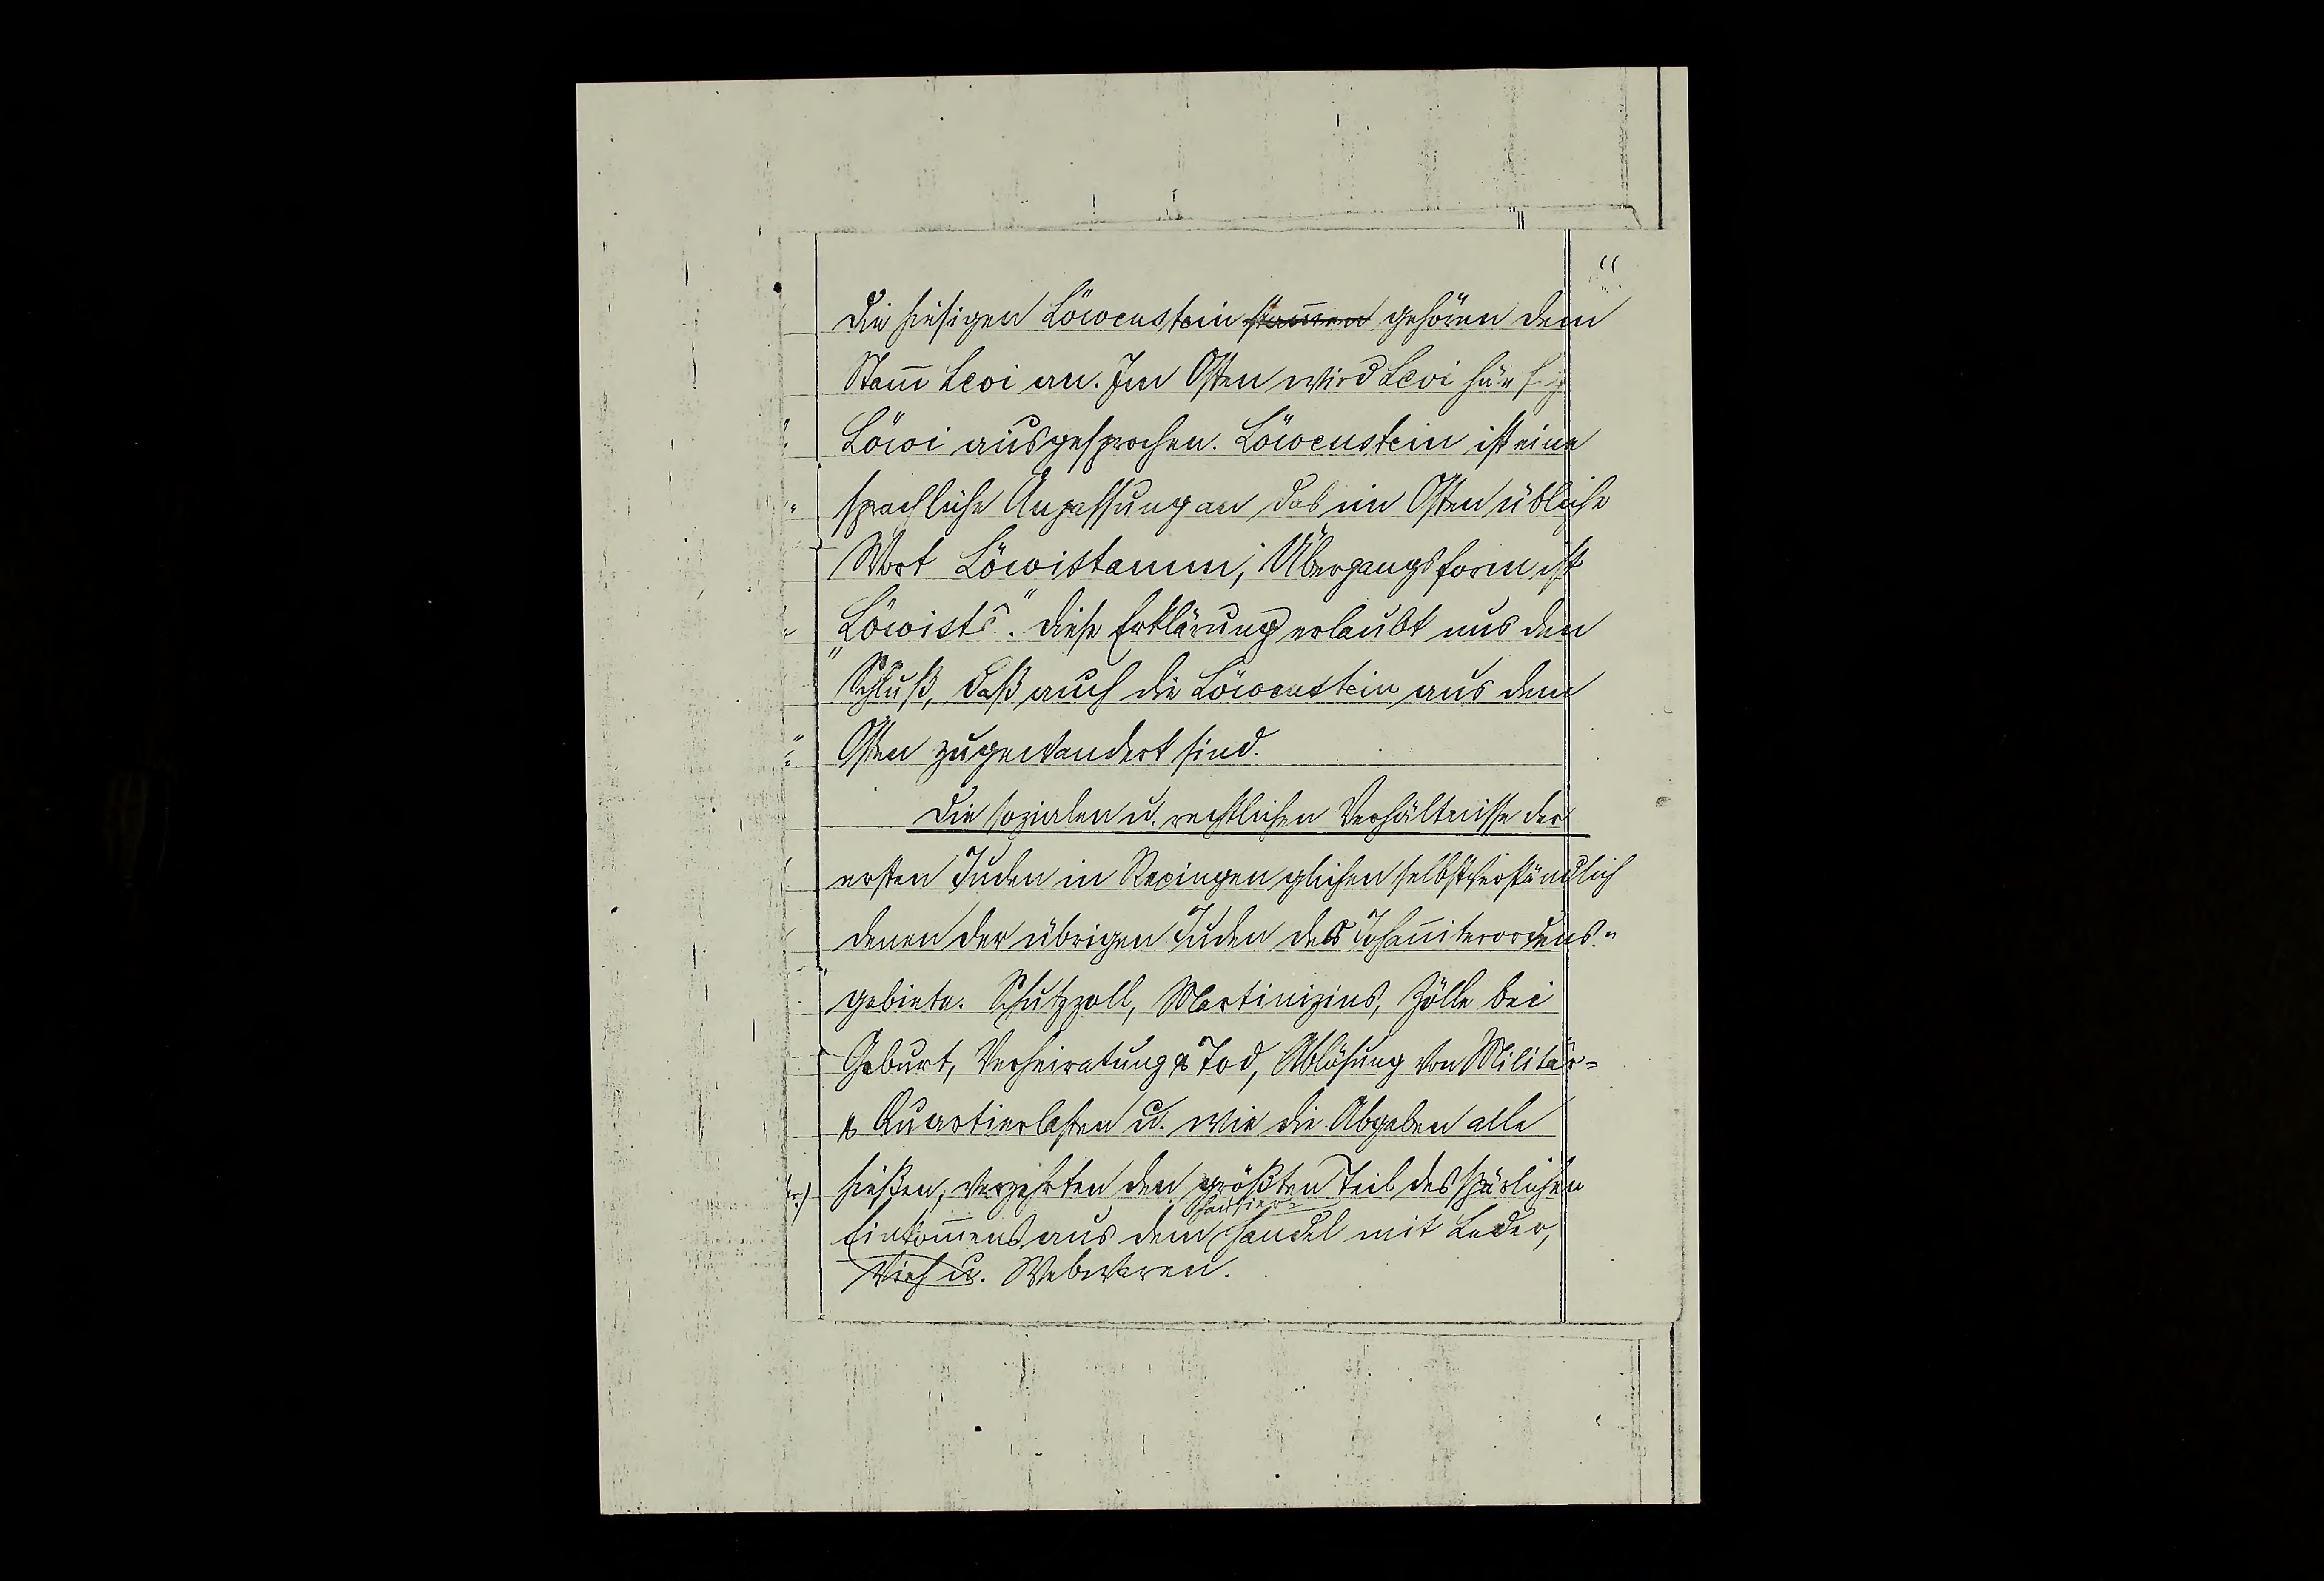 Die hiesigen Löwenstein stam̄en gehören dem
Stam̄ Levi an. Im Osten wird Levi häufig
Löwi ausgesprochen. Löwenstein ist eine
sprachliche Anpassung an das im Osten übliche
Wort Löwistamm; Übergangsform ist
„Löwist". Diese Erklärung erlaubt uns den
Schluß, daß auch die Löwenstein aus dem
Osten zugewandert sind.
Die sozialen u. rechtlichen Verhältnisse der
ersten Juden in Rexingen glichen selbstverständlich
denen der übrigen Juden des Johan̄iterordens-
gebiets. Schutzzoll, Martinizins, Zölle bei
Geburt, Verheiratung & Tod, Ablösung von Militär-
& Quartierlasten u. wie die Abgaben alle
hießen, verzehrten den größten Teil des spärlichen
Hausier-
Einkom̄ens aus dem Handel mit Leder,
Vieh u. Webwaren.